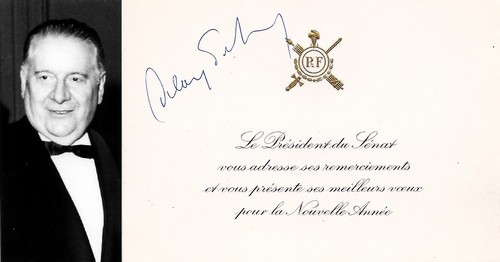 R.F
Le Président du Sénat
vous adresse ses remerciements
et vous présente ses meilleurs vœux
pour la Nouvelle Année